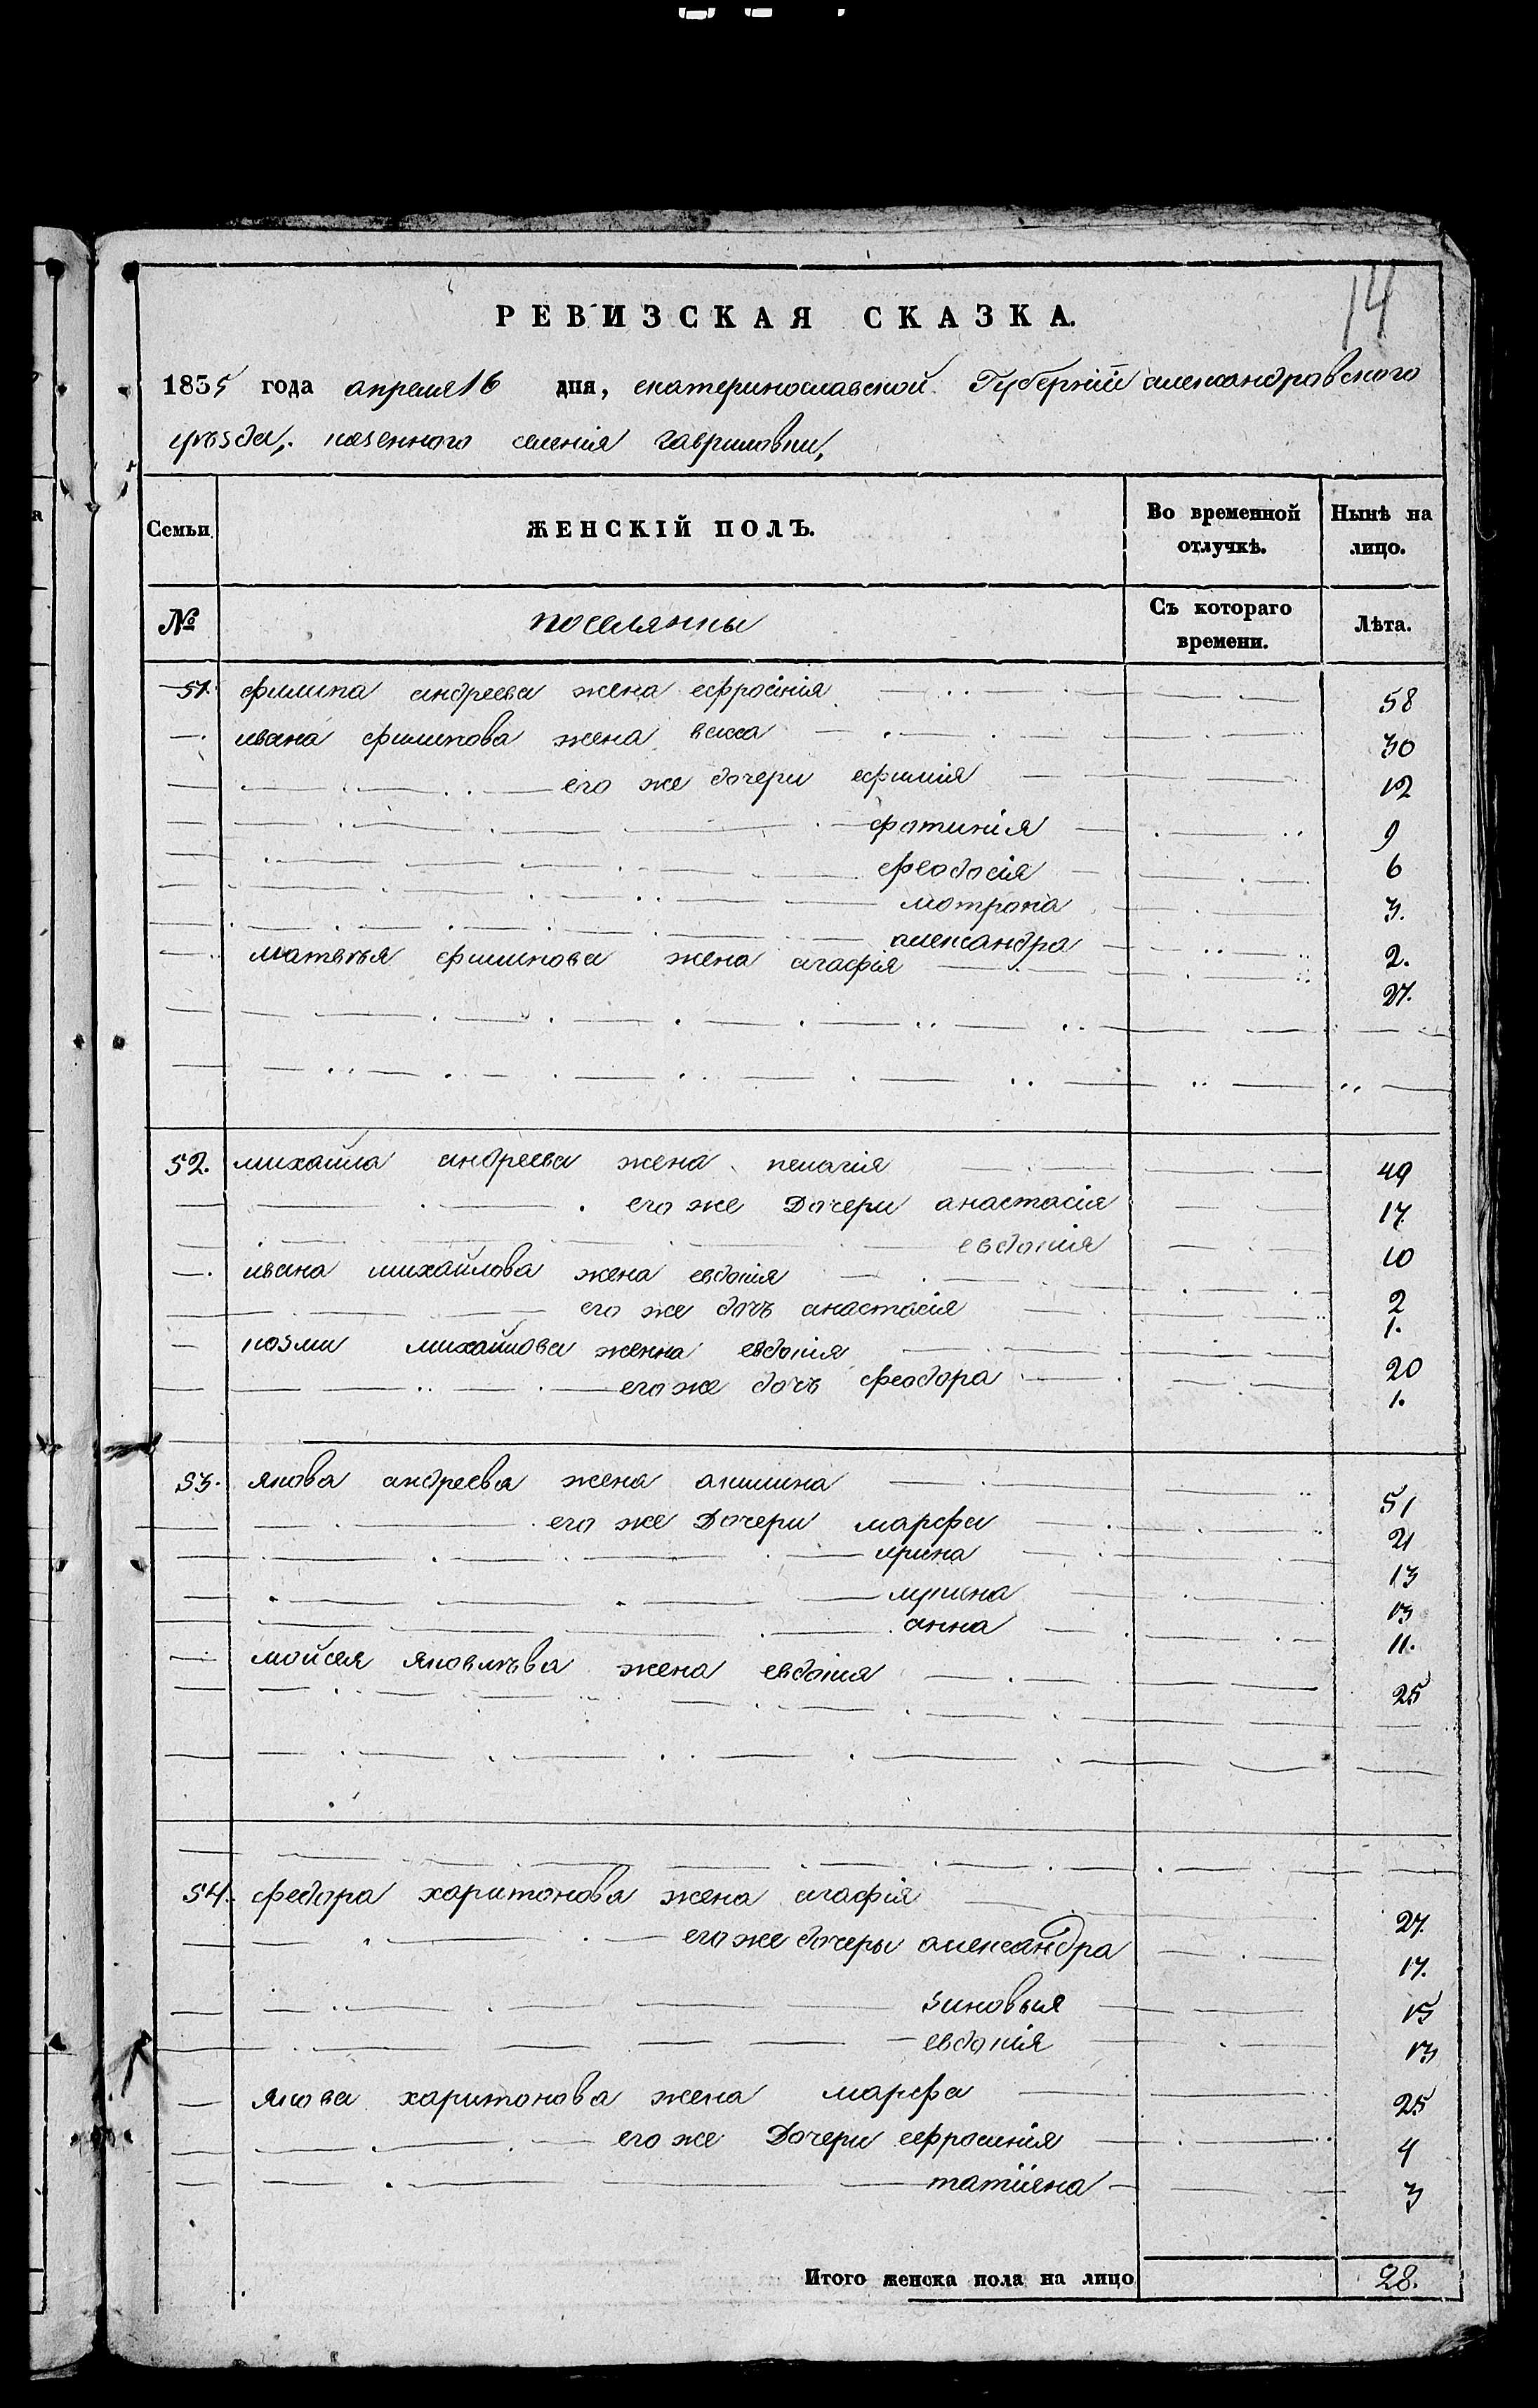 14
РЕВИЗСКАЯ СКАЗКА.
1835 года апреля 16 дня, екатеринославской Губернїи александровского
уезда, казенного селенїя гавриловки,
Семьи
ЖЕНСКІЙ ПОЛЪ.
Во временной отлучкѣ.
Нынѣ на лицо.
№
поселянки
Съ котораго времени.
Лѣта.
51. филипа андреева жена ефросінія 58
ивана филипова жена васса 30
его же дочери ефимія 12
фотинія 9
феодосія 6
мотрона 3.
александра 2.
матвѣя филипова жена агафія 27.
52. михайла андреева жена пелагія 49
его же Дочери анастасія 17
евдокія 10
ивана михайлова жена евдокія 2
его же дочъ анастасія 1.
козми михайлова женна евдокія 20
его же дочъ феодора 1.
53. якова андреева жена акилина 51
его же Дочери марфа 21
ирина 13
лукина 13
анна 11.
мойсея яковлѣва жена евдокія 25
54. федора харитонова жена агафія 27.
его же дочеры александра 17.
зиновья 15
евдокія 13
якова харитонова жена марфа 25
его же Дочери еефросинія 4
татіяна 3
Итого женска пола на лицо 28.